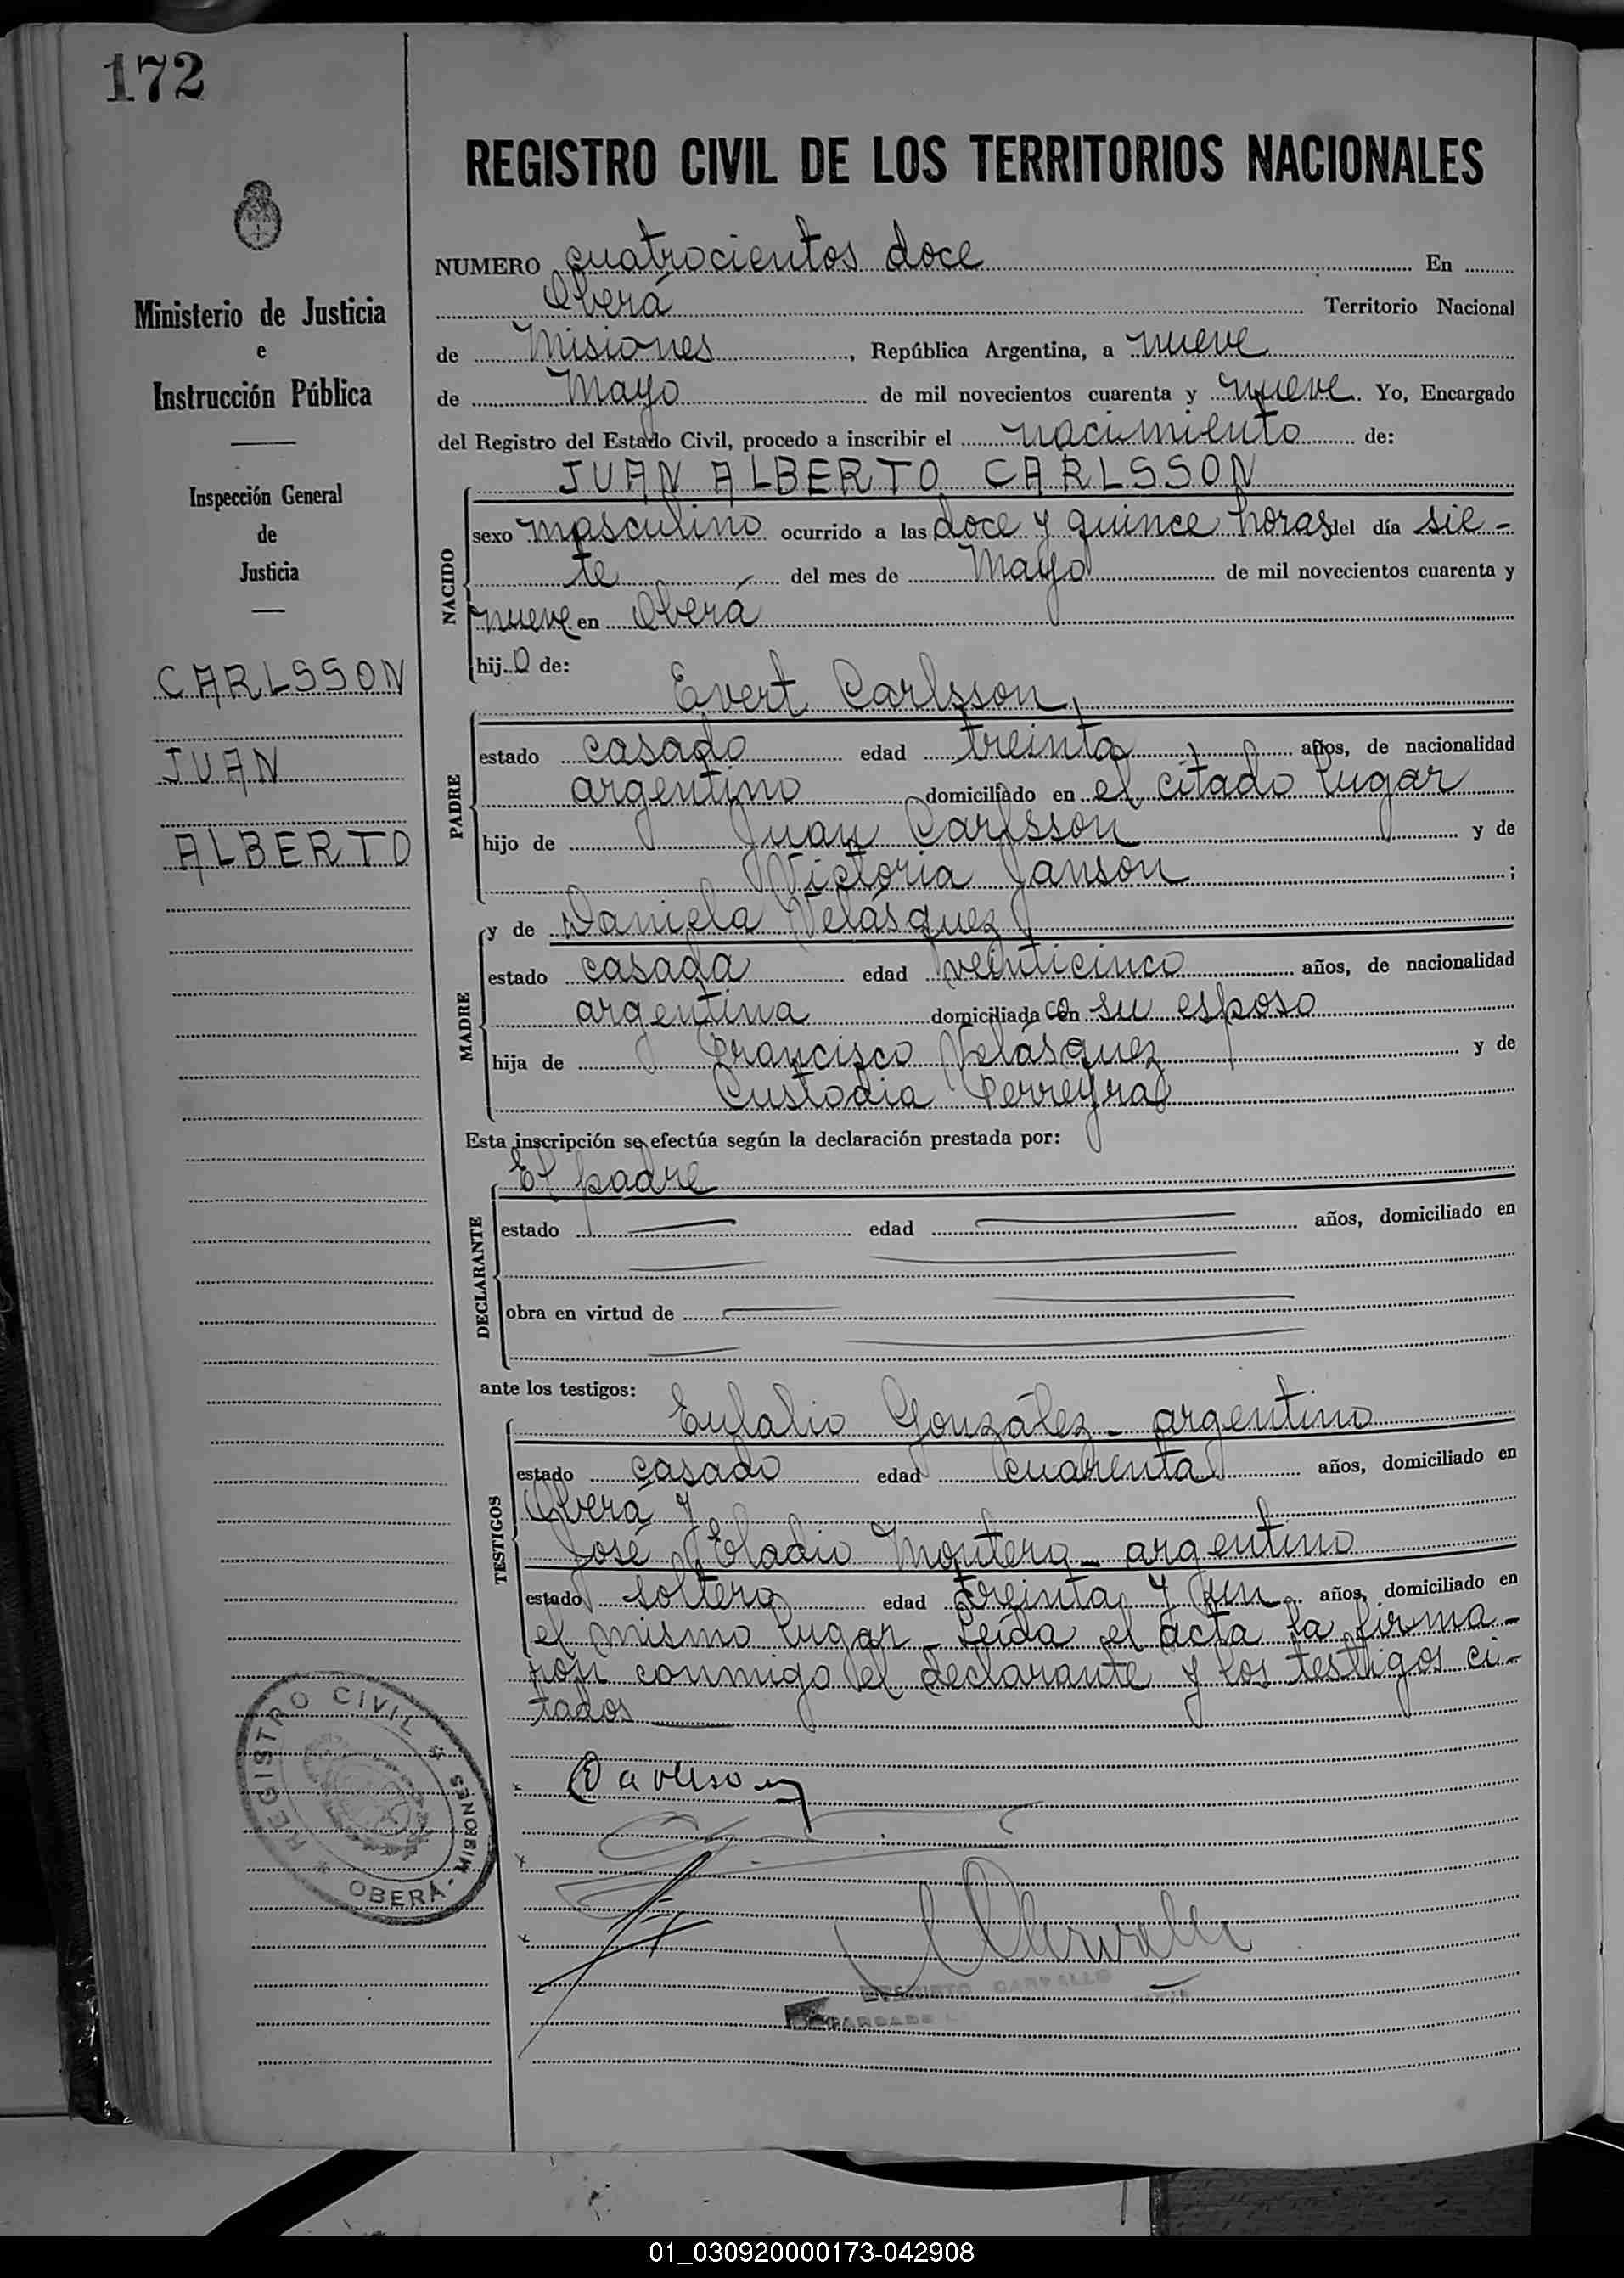 172
REGISTRO CIVIL DE LOS TERRITORIOS NACIONALES
Ministerio de Justicia
e
Instrucción Pública
Inspección General
de
Justicia
CARLSSON
JUAN
ALBERTO
NUMERO cuatrocientos doce En
Oberá Territorio Nacional
de Misiones, República Argentina, a nueve
de Mayo de mil novecientos cuarenta y nueve. Yo, Encargado
del Registro del Estado Civil, procedo a inscribir el nacimiento de:
JUAN ALBERTO CARLSSON
NACIDO
sexo masculino ocurrido a las doce y quince horas del día sie-
te del mes de Mayo de mil novecientos cuarenta y
nueve en Oberá
hijo de:
Evert Carlsson,
PADRE
estado casado edad treinta años, de nacionalidad
argentino domiciliado en el citado lugar
hijo de Juan Carlsson y de
Victoria Janson ;
MADRE
y de Daniela Velásquez
estado casada edad veinticinco años, de nacionalidad
argentina domiciliada con su esposo
hija de Francisco Velásquez y de
Custodia Ferreyra
Esta inscripción se efectúa según la declaración prestada por:
El padre
DECLARANTE
estado edad años, domiciliado en
obra en virtud de
ante los testigos:
Eulalio González - argentino
TESTIGOS
estado casado edad cuarenta años, domiciliado en
Oberá y
José Eladio Montero - argentino
estado soltero edad treinta y un años, domiciliado en
el mismo lugar - Leída el acta la firma-
ron conmigo el declarante y los testigos ci-
tados
REGISTRO CIVIL
OBERÁ - MISIONES
01_030920000173-042908